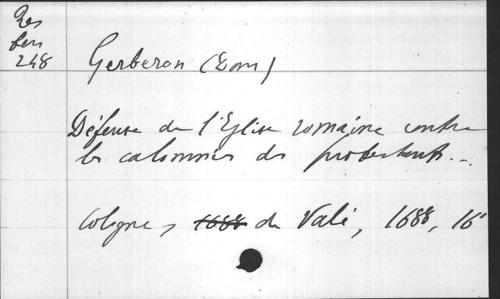 Res
248
Gerberon (Dom)
Défense de l'Eglise romaine contre
les calomnies des protestants...
Cologne, 1688 de Vale, 1688, 16°